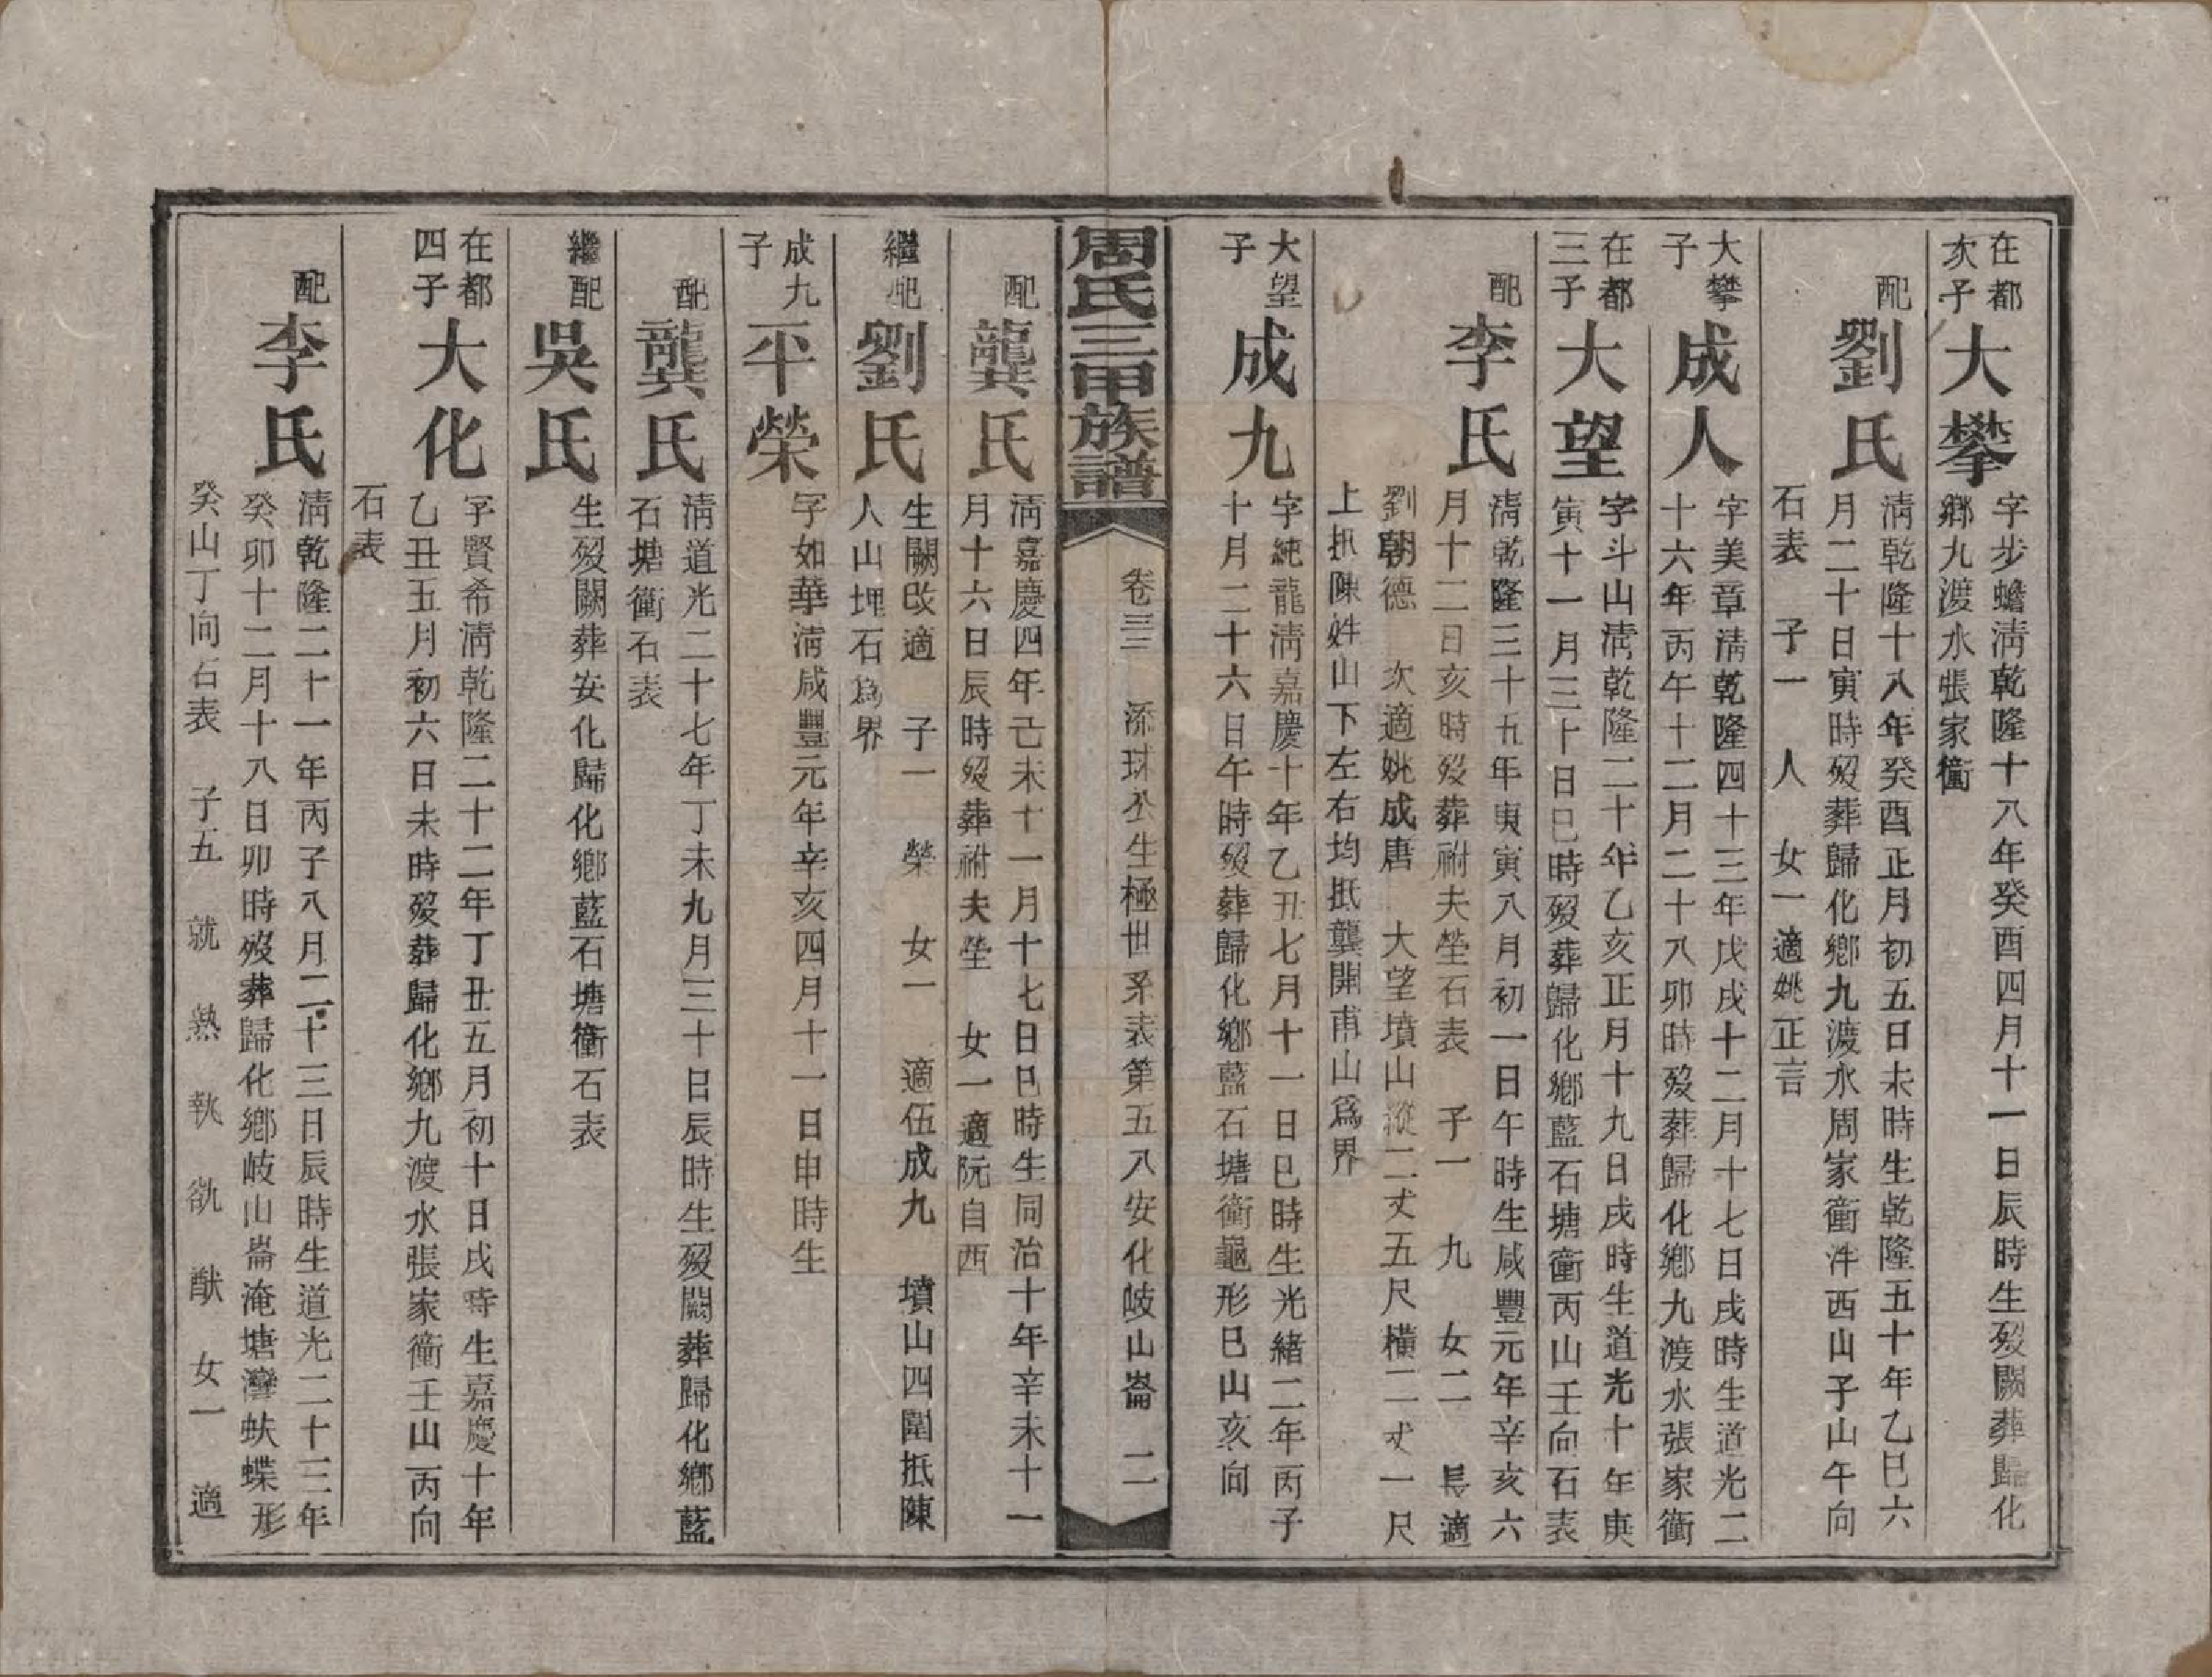 在都
次子
大攀
字步蟾淸乾隆十八年癸酉四月十一日辰時生歿闕葬歸化
鄉九渡水張家衝
配
劉氏
淸乾隆十八年癸酉正月初五日未時生乾隆五十年乙巳六
月二十日寅時歿葬歸化鄉九渡水周家衝泮西山子山午向
石表　子一　人　女一適姚正言
大攀
子
成人
字美章淸乾隆四十三年戊戌十二月十七日戌時生道光二
十六年丙午十二月二十八卯時歿葬歸化鄉九渡水張家衝
在都
三子
大望
字斗山淸乾隆二十年乙亥正月十九日戌時生道光十年庚
寅十一月三十日巳時歿葬歸化鄉藍石塘衝丙山壬向石表
配
李氏
淸乾隆三十五年庚寅八月初一日午時生咸豐元年辛亥六
月十二日亥時歿葬祔夫塋石表　子一　九　女二　長適
劉朝德　次適姚成唐　大望墳山縱二丈五尺橫二丈一尺
上扺陳姓山下左右均抵龔開甫山爲界
大望
子
成九
字純龍淸嘉慶十年乙丑七月十一日巳時生光緖二年丙子
十月二十六日午時歿葬歸化鄉藍石塘衝龜形巳山亥向
周氏三甲族譜
卷三三　添球公生極世系表第五八安化岐山崙　二
配
龔氏
淸嘉慶四年己未十一月十七日巳時生同治十年辛未十一
月十六日辰時歿葬祔夫塋　女一適阮自西
繼配
劉氏
生闕改適　子一　榮　女一　適伍成九　墳山四圍抵陳
人山埋石爲界
成九
子
平榮
字如華淸咸豐元年辛亥四月十一日申時生
配
龔氏
淸道光二十七年丁未九月三十日辰時生歿闕葬歸化鄉藍
石塘衝石表
繼配
吳氏
生歿闕葬安化歸化鄉藍石塘衝石表
在都
四子
大化
字賢希淸乾隆二十二年丁丑五月初十日戌時生嘉慶十年
乙丑五月初六日未時歿葬歸化鄉九渡水張家衝壬山丙向
石表
配
李氏
淸乾隆二十一年丙子八月二十三日辰時生道光二十三年
癸卯十二月十八日卯時歿葬歸化鄉岐山崙淹塘灣蚨蝶形
癸山丁向石表　子五　就　熟　執　欿　猷　女一　適